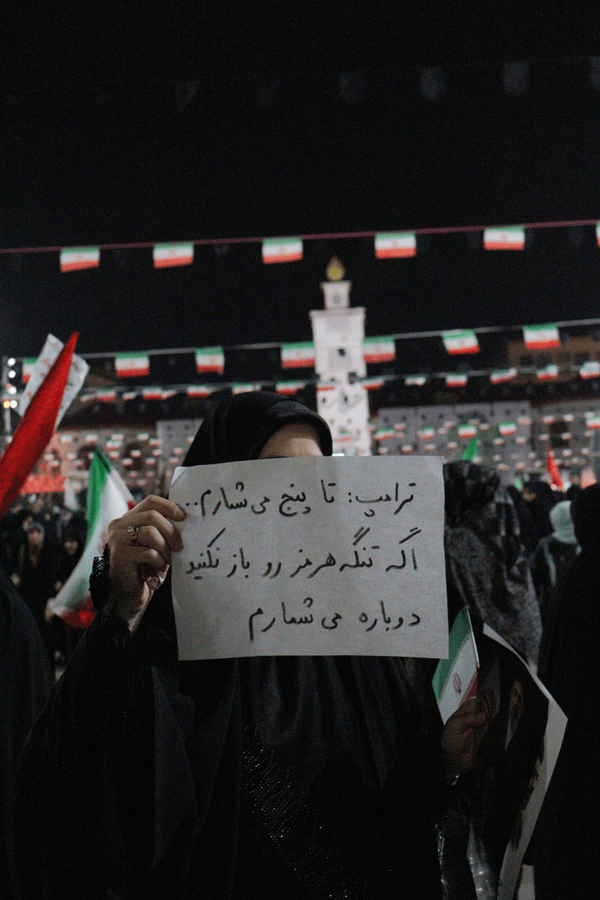 ترامپ: تا پنج می‌شمارم...
اگه تنگه هرمز رو باز نکنید
دوباره می شمارم